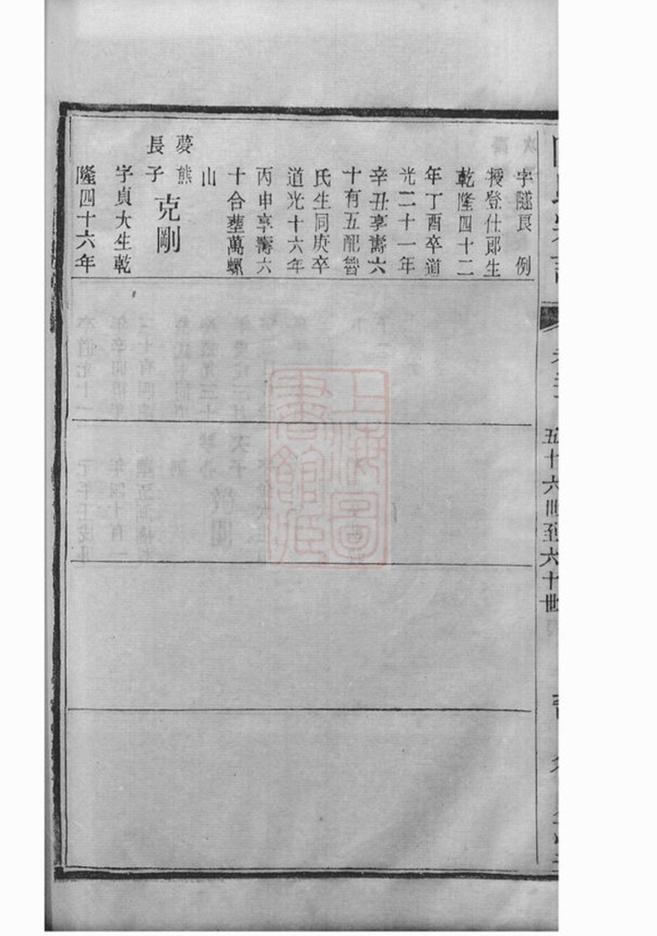 字隨良例
授登仕郎生
乾隆四十二
年丁酉卒道
光二十一年
辛丑享壽六
十有五配曾
氏生同庚卒
道光十六年
丙申享壽六
十合塟萬螺
山
夢熊長子
克剛
字貞大生乾
隆四十六年
五十六世至六十世
上海圖書館藏